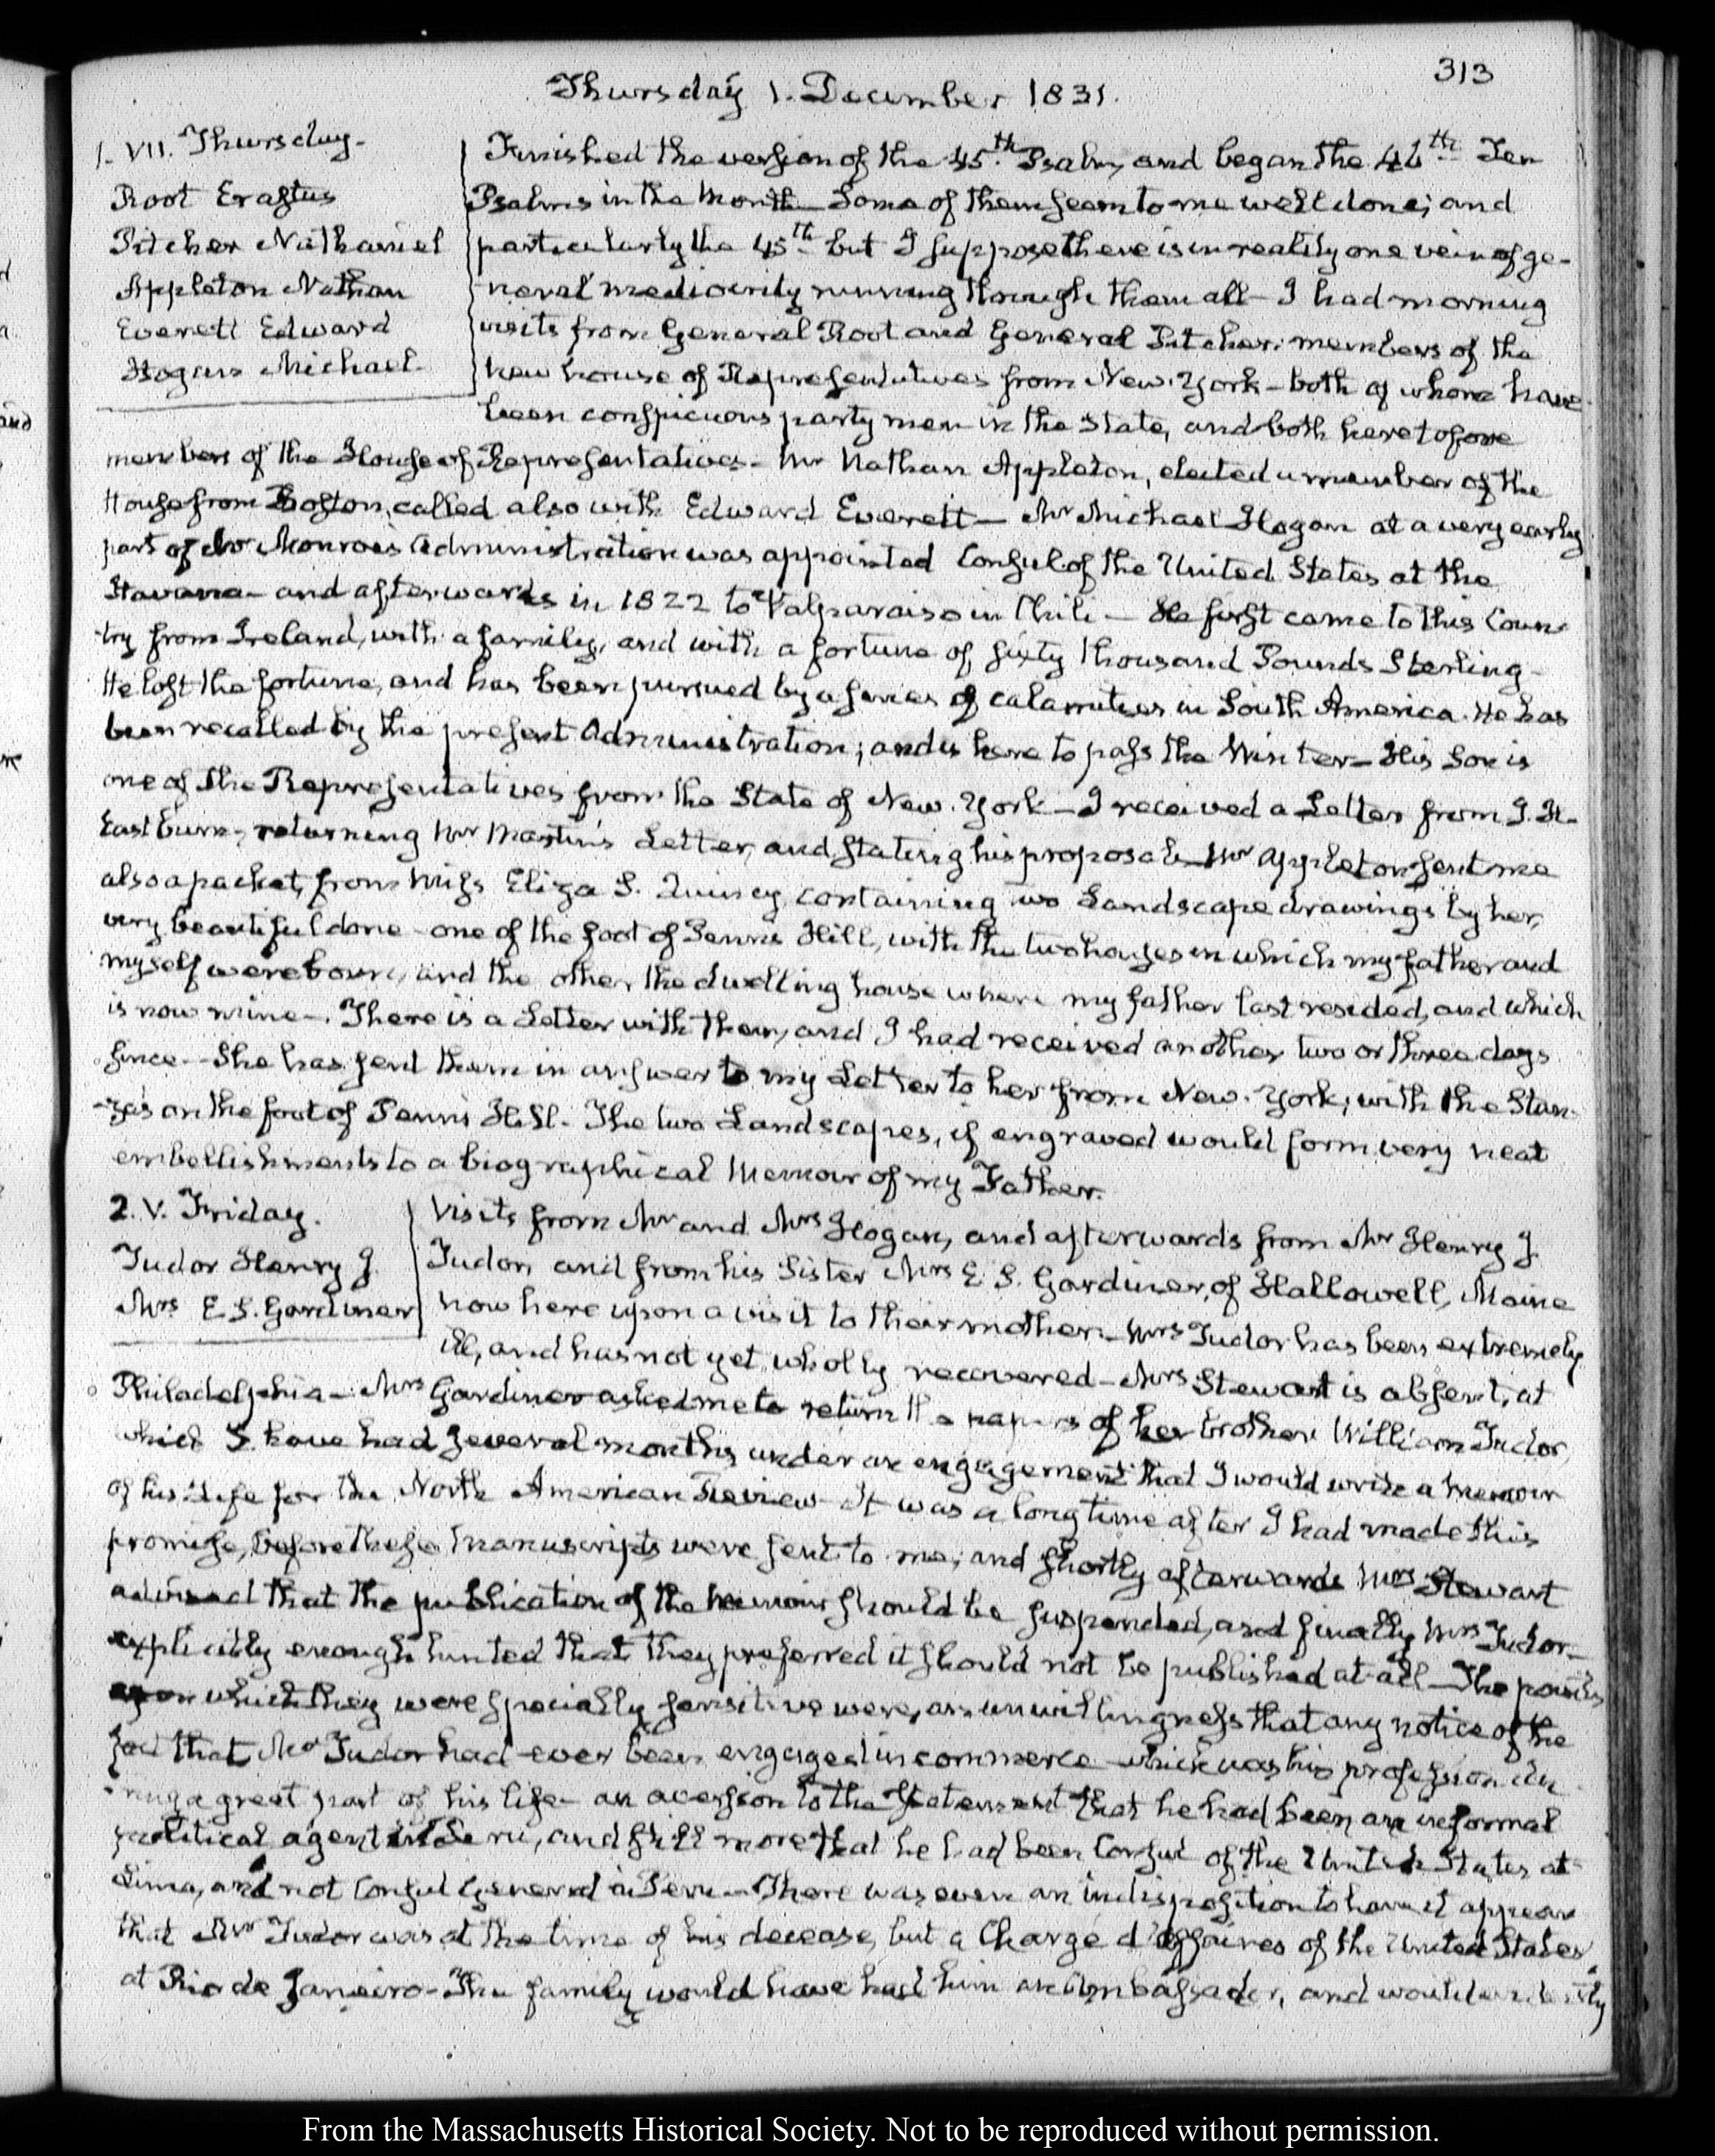 313
Thursday 1. December 1831.
1. VII. Thursday.
Root Erastus
Pitcher Nathaniel
Appleton Nathan
Everett Edward
Hogan Michael.
Finished the version of the 45.th Psalm, and began the 46th Ten
Psalms in the Month Some of them seem to me well done; and
particularly the 45th but I suppose there is in reality one vein of ge-
neral mediocrity running through them all — I had morning
visits from General Root and General Pitcher: members of the
new house of Representatives from New-York — both of whom have
been conspicuous party men in the State, and both heretofore
members of the House of Representatives — Mr Nathan Appleton, elected a member of the
House from Boston, called also with Edward Everett — Mr Michael Hogan at a very early
part of Mr Monroe's administration was appointed Consul of the United States at the
Havanna — and afterwards in 1822 to Valparaiso in Chili — He first came to this Coun-
try from Ireland, with a family, and with a fortune of sixty thousand Pounds Sterling —
He lost the fortune, and has been pursued by a series of calamities in South America. He has
been recalled by the present Administration; and is here to pass the Winter — His Son is
one of the Representatives from the State of New-York — I received a Letter from J. H.
Eastburn, returning Mr Martin's Letter, and stating his proposals — Mr Appleton sent me
also a packet, from Miss Eliza S. Quincy, containing two Landscape drawings by her,
very beautiful done — one of the foot of Penns Hill, with the two houses in which my father and
myself were born, and the other the dwelling house where my father last resided, and which
is now mine —. There is a Letter with them, and I had received another two or three days
since — She has sent them in answer to my Letter to her from New-York; with the Stan-
-zas on the foot of Penn's Hill. The two Landscapes, if engraved would form very neat
embellishments to a biographical Memoir of my Father.
2. V. Friday.
Tudor Henry J.
Mrs E. S. Gardiner
Visits from Mr and Mrs Hogan, and afterwards from Mr Henry J.
Tudor, and from his Sister Mrs E. S. Gardiner, of Hallowell, Maine
now here upon a visit to their mother — Mrs Tudor has been extremely
ill, and has not yet wholly recovered — Mrs Stewart is absent, at
Philadelphia — Mrs Gardiner asked me to return the papers of her brother William Tudor,
which I have had several months, under an engagement that I would write a Memoir
of his Life for the North American Review — It was a long time after I had made this
promise, before these Manuscripts were sent to me; and shortly afterwards Mrs Stewart
advised that the publication of the Memoir should be suspended, and finally Mrs Tudor
explicitly enough hinted that they preferred it should not be published at all — The points
upon which they were specially sensitive were, an unwillingness that any notice of the
fact that Mr Tudor had ever been engaged in commerce — which was his profession du-
-ring a great part of his life — an aversion to the statement that he had been an informal
political agent in Peru, and still more that he had been Consul of the United States at
Lima, and not Consul General in Peru — There was even an indisposition to have it appear
that Mr Tudor was at the time of his decease, but a Chargé d'affaires of the United States,
at Rio de Janeiro — The family would have had him an Ambassador, and would evidently
From the Massachusetts Historical Society. Not to be reproduced without permission.